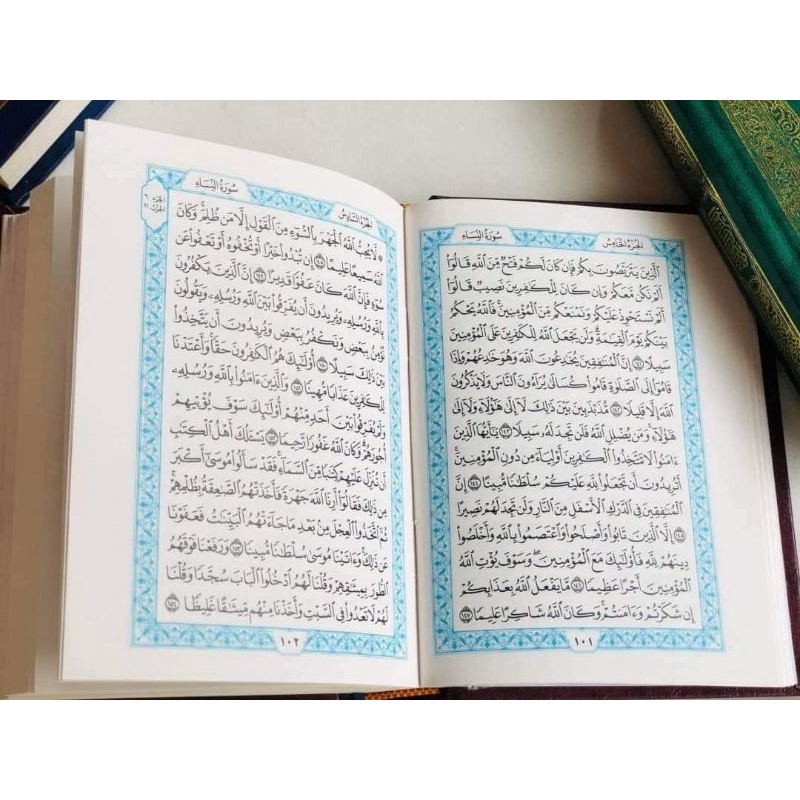 الجزء الخامس
سورة النساء
الَّذِينَ يَتَرَبَّصُونَ بِكُمْ فَإِن كَانَ لَكُمْ فَتْحٌ مِّنَ اللَّهِ قَالُوٓا۟
أَلَمْ نَكُن مَّعَكُمْ وَإِن كَانَ لِلْكَٰفِرِينَ نَصِيبٌ قَالُوٓا۟
أَلَمْ نَسْتَحْوِذْ عَلَيْكُمْ وَنَمْنَعْكُم مِّنَ الْمُؤْمِنِينَ ۚ فَاللَّهُ يَحْكُمُ
بَيْنَكُمْ يَوْمَ الْقِيَٰمَةِ ۗ وَلَن يَجْعَلَ اللَّهُ لِلْكَٰفِرِينَ عَلَى الْمُؤْمِنِينَ
سَبِيلًا ١٤١ إِنَّ الْمُنَٰفِقِينَ يُخَٰدِعُونَ اللَّهَ وَهُوَ خَٰدِعُهُمْ وَإِذَا
قَامُوٓا۟ إِلَى الصَّلَوٰةِ قَامُوا۟ كُسَالَىٰ يُرَآءُونَ النَّاسَ وَلَا يَذْكُرُونَ
اللَّهَ إِلَّا قَلِيلًا ١٤٢ مُّذَبْذَبِينَ بَيْنَ ذَٰلِكَ لَآ إِلَىٰ هَٰٓؤُلَآءِ وَلَآ إِلَىٰ
هَٰٓؤُلَآءِ ۚ وَمَن يُضْلِلِ اللَّهُ فَلَن تَجِدَ لَهُۥ سَبِيلًا ١٤٣ يَٰٓأَيُّهَا الَّذِينَ
ءَامَنُوا۟ لَا تَتَّخِذُوا۟ الْكَٰفِرِينَ أَوْلِيَآءَ مِن دُونِ الْمُؤْمِنِينَ ۚ
أَتُرِيدُونَ أَن تَجْعَلُوا۟ لِلَّهِ عَلَيْكُمْ سُلْطَٰنًا مُّبِينًا ١٤٤ إِنَّ
الْمُنَٰفِقِينَ فِي الدَّرْكِ الْأَسْفَلِ مِنَ النَّارِ وَلَن تَجِدَ لَهُمْ نَصِيرًا
١٤٥ إِلَّا الَّذِينَ تَابُوا۟ وَأَصْلَحُوا۟ وَاعْتَصَمُوا۟ بِاللَّهِ وَأَخْلَصُوا۟
دِينَهُمْ لِلَّهِ فَأُو۟لَٰٓئِكَ مَعَ الْمُؤْمِنِينَ ۖ وَسَوْفَ يُؤْتِ اللَّهُ
الْمُؤْمِنِينَ أَجْرًا عَظِيمًا ١٤٦ مَّا يَفْعَلُ اللَّهُ بِعَذَابِكُمْ
إِن شَكَرْتُمْ وَءَامَنتُمْ ۚ وَكَانَ اللَّهُ شَاكِرًا عَلِيمًا ١٤٧
١٠١
الجزء السادس
سورة النساء
الجزء ٦
الحزب ١١
۞ لَّا يُحِبُّ اللَّهُ الْجَهْرَ بِالسُّوٓءِ مِنَ الْقَوْلِ إِلَّا مَن ظُلِمَ ۚ وَكَانَ
اللَّهُ سَمِيعًا عَلِيمًا ١٤٨ إِن تُبْدُوا۟ خَيْرًا أَوْ تُخْفُوهُ أَوْ تَعْفُوا۟ عَن
سُوٓءٍ فَإِنَّ اللَّهَ كَانَ عَفُوًّا قَدِيرًا ١٤٩ إِنَّ الَّذِينَ يَكْفُرُونَ
بِاللَّهِ وَرُسُلِهِۦ وَيُرِيدُونَ أَن يُفَرِّقُوا۟ بَيْنَ اللَّهِ وَرُسُلِهِۦ وَيَقُولُونَ
نُؤْمِنُ بِبَعْضٍ وَنَكْفُرُ بِبَعْضٍ وَيُرِيدُونَ أَن يَتَّخِذُوا۟
بَيْنَ ذَٰلِكَ سَبِيلًا ١٥٠ أُو۟لَٰٓئِكَ هُمُ الْكَٰفِرُونَ حَقًّا ۚ وَأَعْتَدْنَا
لِلْكَٰفِرِينَ عَذَابًا مُّهِينًا ١٥١ وَالَّذِينَ ءَامَنُوا۟ بِاللَّهِ وَرُسُلِهِۦ
وَلَمْ يُفَرِّقُوا۟ بَيْنَ أَحَدٍ مِّنْهُمْ أُو۟لَٰٓئِكَ سَوْفَ يُؤْتِيهِمْ
أُجُورَهُمْ ۗ وَكَانَ اللَّهُ غَفُورًا رَّحِيمًا ١٥٢ يَسْـَٔلُكَ أَهْلُ الْكِتَٰبِ
أَن تُنَزِّلَ عَلَيْهِمْ كِتَٰبًا مِّنَ السَّمَآءِ ۚ فَقَدْ سَأَلُوا۟ مُوسَىٰٓ أَكْبَرَ
مِن ذَٰلِكَ فَقَالُوٓا۟ أَرِنَا اللَّهَ جَهْرَةً فَأَخَذَتْهُمُ الصَّٰعِقَةُ بِظُلْمِهِمْ ۚ
ثُمَّ اتَّخَذُوا۟ الْعِجْلَ مِنۢ بَعْدِ مَا جَآءَتْهُمُ الْبَيِّنَٰتُ فَعَفَوْنَا
عَن ذَٰلِكَ ۚ وَءَاتَيْنَا مُوسَىٰ سُلْطَٰنًا مُّبِينًا ١٥٣ وَرَفَعْنَا فَوْقَهُمُ
الطُّورَ بِمِيثَٰقِهِمْ وَقُلْنَا لَهُمُ ادْخُلُوا۟ الْبَابَ سُجَّدًا وَقُلْنَا
لَهُمْ لَا تَعْدُوا۟ فِي السَّبْتِ وَأَخَذْنَا مِنْهُم مِّيثَٰقًا غَلِيظًا ١٥٤
١٠٢